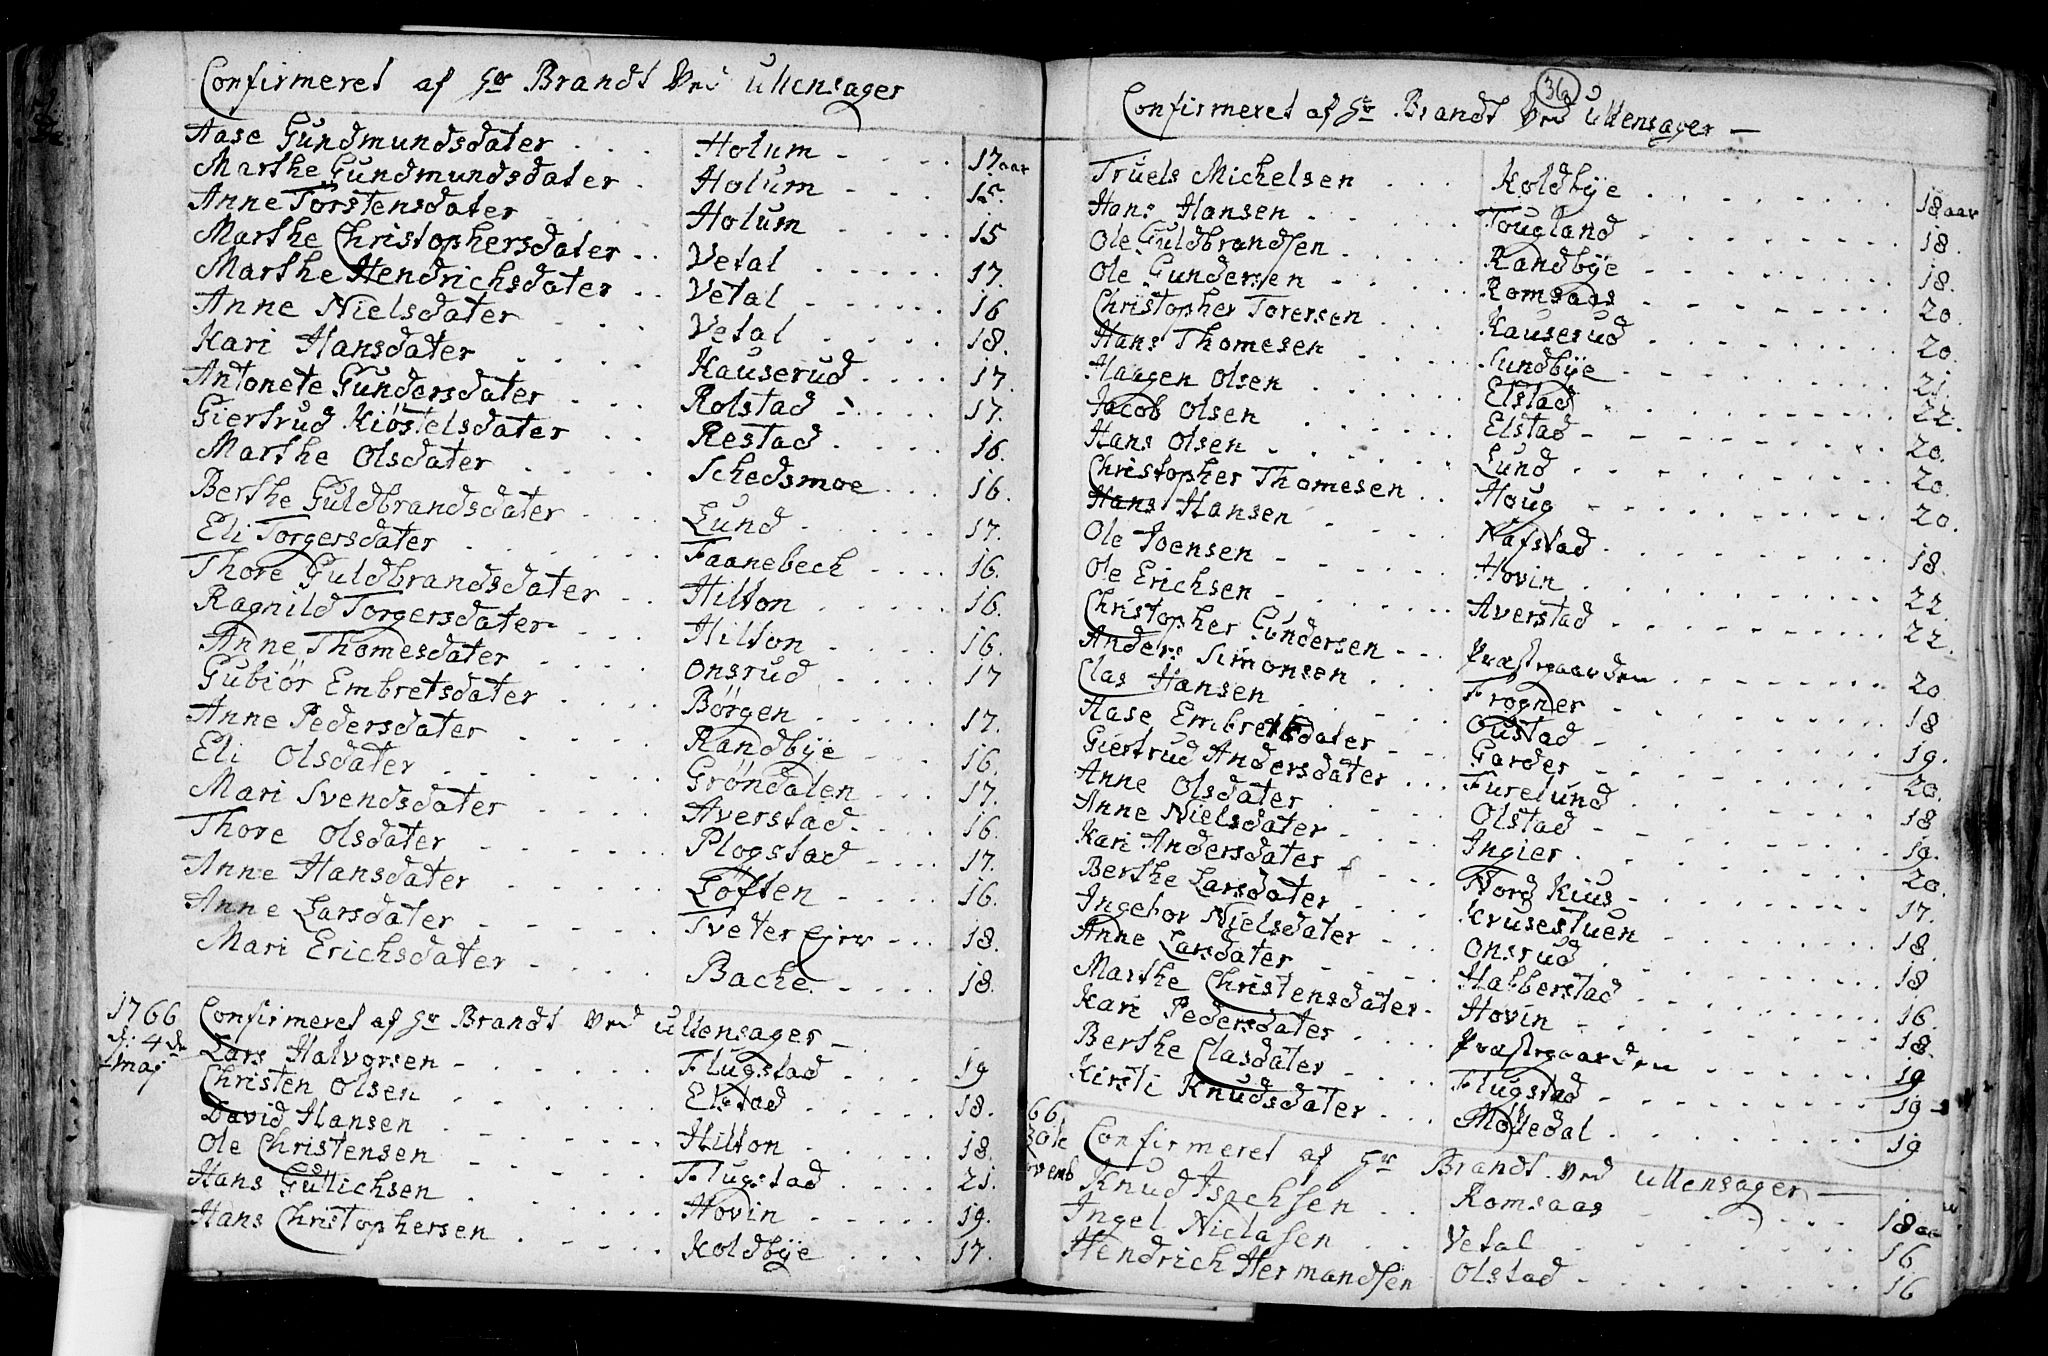 Confirmeret af Hr Brandt Ved Ullensager
Aase Gundmundsdater Holum 17 aar
Marthe Gundmundsdater Holum 15.
Anne Torstensdater Holum 15
Marthe Christophersdater Vetal 17.
Marthe Hendrichsdater Vetal 16
Anne Nielsdater Vetal 18.
Kari Hansdater Kauserud 17.
Antonete Gundersdater Rolstad 17.
Giertrud Kiøstelsdater Restad 16.
Marthe Olsdater Schedsmoe 16.
Berthe Guldbrandsdater Lund 17.
Eli Torgersdater Faanebech 16.
Thore Guldbrandsdater Hilton 16.
Ragnild Torgersdater Hilton 16.
Anne Thomesdater Onsrud 17
Gubiør Embretsdater Børgen 17.
Anne Pedersdater Randbÿe 16.
Eli Olsdater Grøndalen 17.
Mari Svendsdater Averstad 16.
Thore Olsdater Plogstad 17.
Anne Hansdater Løften 16.
Anne Larsdater Tveter 18.
Mari Erichsdater Bache 18.
1766 Confirmeret af Hr Brandt Ved Ullensager
d: 4de Lars Halvorsen Flugstad 19
Maj Christen Olsen Elstad 18.
David Hansen Hilton 18.
Ole Christensen Flugstad 21.
Hans Gullichsen Hovin 19.
Hans Christophersen Koldbÿe 17.
36
Confirmeret af Hr Brandt Ved Ullensager
Truels Michelsen Koldbÿe 18 aar
Hans Hansen Tougland 18.
Ole Guldbrandsen Randbÿe 18.
Ole Gundersen Romsaas 20.
Christopher Torersen Kauserud 20.
Hans Thomesen Sundbÿe 21.
Haagen Olsen Elstad 22.
Jacob Olsen Elstad 20.
Hans Olsen Lund 20.
Christopher Thomesen Houg 20.
Hans Hansen Nafstad 18.
Ole Joensen Hovin 22.
Ole Erichsen Averstad 22.
Christopher Gundersen Præstegaarden 20.
Anders Simonsen Frogner 18
Clas Hansen Oustad 19.
Aase Embretsdater Garder 20.
Giertrud Andersdater Furelund 18
Anne Olsdater Olstad 19.
Anne Nielsdater Ingier 20.
Kari Andersdater Nord Kius 17.
Berthe Larsdater Krusestuen 18.
Ingebor Nielsdater Onsrud 18
Anne Larsdater Habberstad 16.
Marthe Christensdater Hovin 18.
Kari Pedersdater Præstegaarden 19
Berthe Clasdater Flugstad 19
Kirsti Knudsdater Mølledal 19
66 Confirmeret af Hr Brandt Ved Ullensager
Knud Isachsen Romsaas 18 aar
Ingel Niclasen Vetal 16
Hendrich Hermandsen Olstad 16